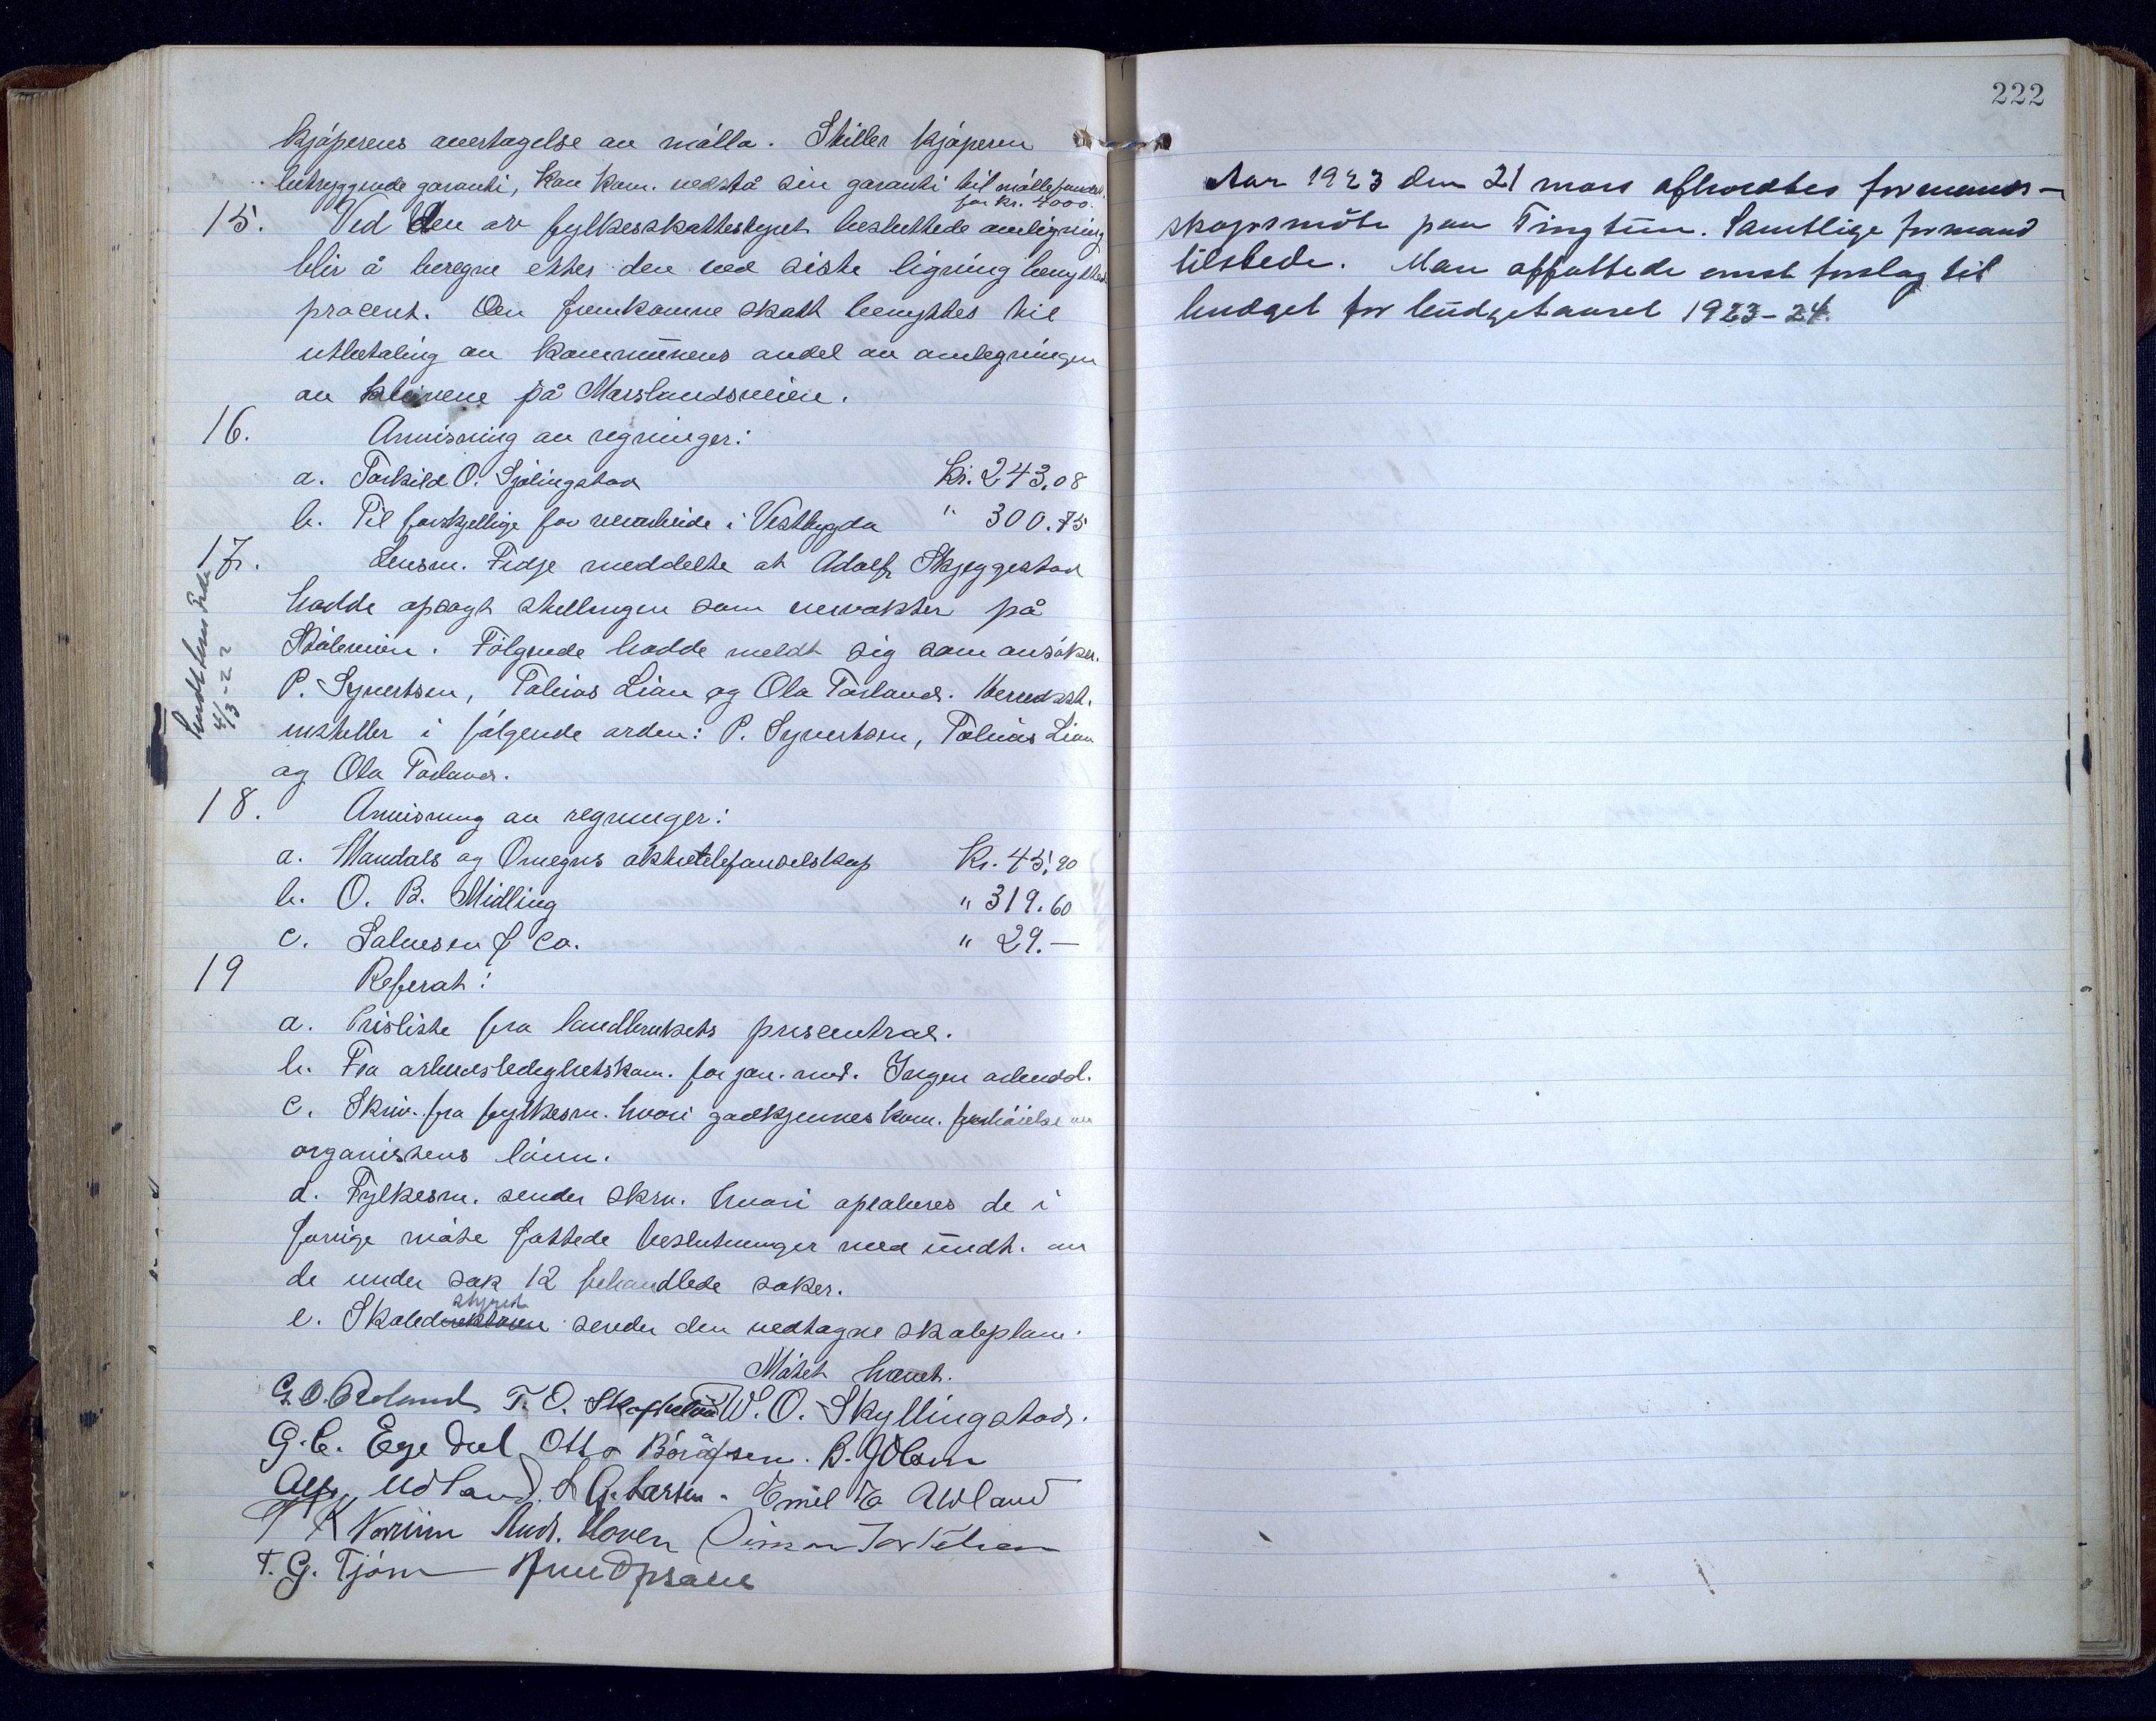 kjøperens overtagelse av mølla. Stiller kjøperen
betryggende garanti, kan kom. vedstå sin garanti til møllefondet
for kr. 4000.
15. Ved den av fylkesskattestyret besluttede omligning
blir å beregne etter den ved siste ligning benyttede
procent. Den fremkomne skatt benyttes til
utbetaling av kommunens andel av omlegningen
av kleivene på Marslandsveien.
16. Anvisning av regninger:
a. Torkild O. Sjølingstad kr. 243,08
b. Til forskjellige for veiarbeide i Vestbygda " 300.75
17. Lensm. Fidje meddelte at Adolf Skjeggestad
hadde opsagt stellingen som veivokter på
Følgende hadde meldt sig som ansøker.
P. Syvertsen, Tobias Lian og Ola Tosland. Herredsst.
instiller i følgende orden: P. Syvertsen, Tobias Lian
og Ola Tosland.
Sendt lens. Fidje
4/3-22
18. Anvisning av regninger:
a. Mandals og Omegns aktietelefonselskap kr. 45,90
b. O. B. Midling " 319.60
c. Salvesen & Co. " 29.—
19 Referat:
a. Prisliste fra landbrukets priscentral.
b. Fra arbeidsledighetskom. for jan. mnd. Ingen arbeidsl.
c. Skriv. fra fylkesm. hvori godkjennes kom. forhøielse av
organistens lønn.
d. Fylkesm. sender skrv. hvori aproberes de i
forrige møte fattede beslutninger med undt. av
de under sak 12 behandlede saker.
styret
e. Skoledirektøren sender den vedtagne skoleplan.
Møtet hævet.
G. O. Roland T. O. W. O. Skyllingstad.
G. C. Egedal Otto B. J. Olsen
Alfr. Udland. S G. Larsen. Emil E Udland
T K Valand And. Hoven Simon Torkelsen
T. G. Tjøm
222
Aar 1923 den 21 mars afholdtes formand-
skapsmøte paa Tingtun. Samtlige formænd
tilstede. Man affattede omst forslag til
budget for budgetaaret 1923-24.